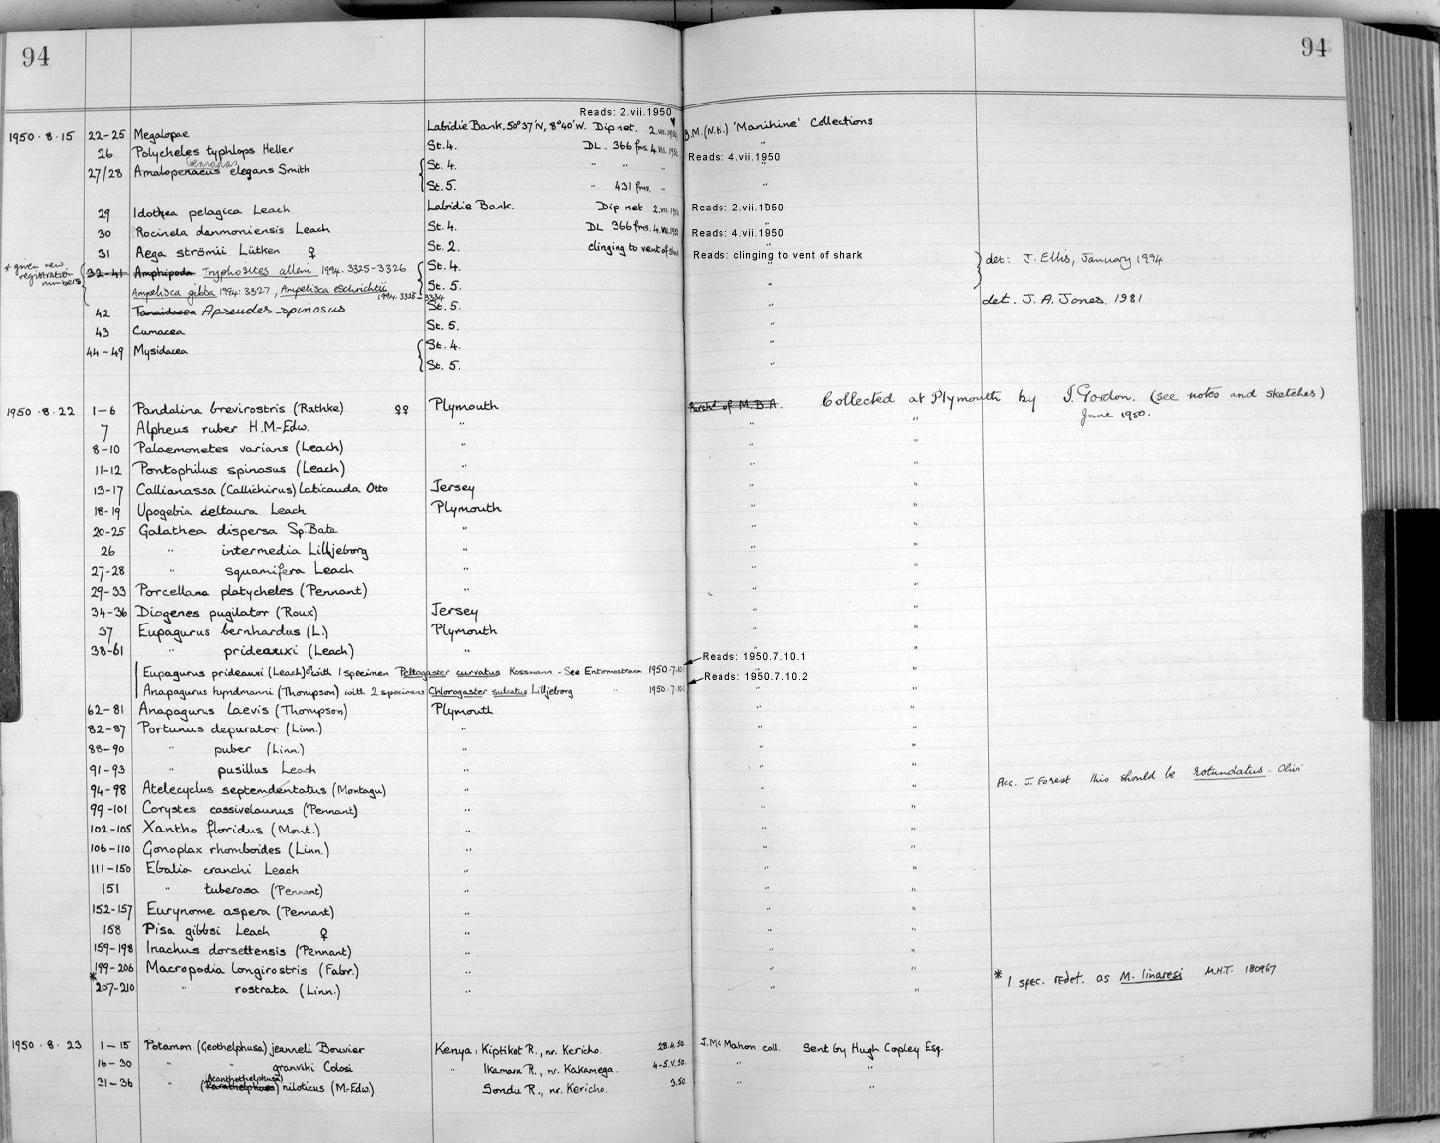 94 94
Reads: 2.vii.1950
1950.8.15 22-25 Megalopae Labidie Bank. 50°37'N, 8°40'W. Dip net. 2.vii.1950 B.M.(N.H.) 'Manihine' Collections
26 Polycheles typhlops Heller St.4. DL. 366 fms. 4.vii.1950 Reads: 4.vii.1950 "
Gennadas
27/28 Amalopenaeus elegans Smith { St. 4. " " "
St. 5. " 431 fms. " "
29 Idothea pelagica Leach Labidie Bank. Dip net 2.vii.1950 Reads: 2.vii.1950
30 Rocinela danmoniensis Leach St.4. DL 366 fms. 4.vii.1950 Reads: 4.vii.1950
31 Aega strömii Lütken ♀ St. 2. clinging to vent of shark Reads: clinging to vent of shark
* given new registration numbers { 32-41 Amphipoda Tryphosites alleni 1994.3325-3326 { St. 4. } det: J. Ellis, January 1994
Ampelisca gibba 1994:3327, Ampelisca eschrichtii 1994.3328-3334 St. 5. "
42 Tanaidacea Apseudes spinosus St. 5. " det. J. A. Jones. 1981
43 Cumacea St. 5. "
44-49 Mysidacea { St. 4. "
St. 5. "
1950.8.22 1-6 Pandalina brevirostris (Rathke) ♀♀ Plymouth Purchd of M.B.A. Collected at Plymouth by I. Gordon. (see notes and sketches)
June 1950.
7 Alpheus ruber H.M-Edw. " " "
8-10 Palaemonetes varians (Leach) " " "
11-12 Pontophilus spinosus (Leach) " " "
13-17 Callianassa (Callichirus) laticauda Otto Jersey " "
18-19 Upogebia deltaura Leach Plymouth " "
20-25 Galathea dispersa Sp.Bate " " "
26 " intermedia Lilljeborg " " "
27-28 " squamifera Leach " " "
29-33 Porcellana platycheles (Pennant) " " "
34-36 Diogenes pugilator (Roux) Jersey " "
37 Eupagurus bernhardus (L.) Plymouth " "
38-61 " prideauxi (Leach) " " "
Eupagurus prideauxi (Leach) with 1 specimen Peltogaster curvatus Kossmann - See Entomostraca 1950.7.10.1 Reads: 1950.7.10.1
Anapagurus hyndmanni (Thompson) with 2 specimens Chlorogaster sulcatus Lilljeborg " 1950.7.10.2 Reads: 1950.7.10.2
62-81 Anapagurus laevis (Thompson) Plymouth " "
82-87 Portunus depurator (Linn.) " " "
88-90 " puber (Linn.) " " "
91-93 " pusillus Leach " " "
94-98 Atelecyclus septemdentatus (Montagu) " " " Acc. J. Forest this should be rotundatus - Olivi
99-101 Corystes cassivelaunus (Pennant) " " "
102-105 Xantho floridus (Mont.) " " "
106-110 Gonoplax rhomboides (Linn.) " " "
111-150 Ebalia cranchi Leach " " "
151 " tuberosa (Pennant) " " "
152-157 Eurynome aspera (Pennant) " " "
158 Pisa gibbsi Leach ♀ " " "
159-198 Inachus dorsettensis (Pennant) " " "
199-206 Macropodia longirostris (Fabr.) " " "
* 207-210 " rostrata (Linn.) " " " * 1 spec. redet. as M. linaresi M.H.T. 180967
1950.8.23 1-15 Potamon (Geothelphusa) jeanneli Bouvier Kenya: Kiptiket R., nr. Kericho. 28.4.50. J. McMahon coll. Sent by Hugh Copley Esq.
16-30 " " granviki Colosi " Ikamara R., nr. Kakamega. 4-5.V.50. " "
(Acanthothelphusa)
31-36 " (Parathelphusa) niloticus (M-Edw.) Sondu R., nr. Kericho. 3.50. " "